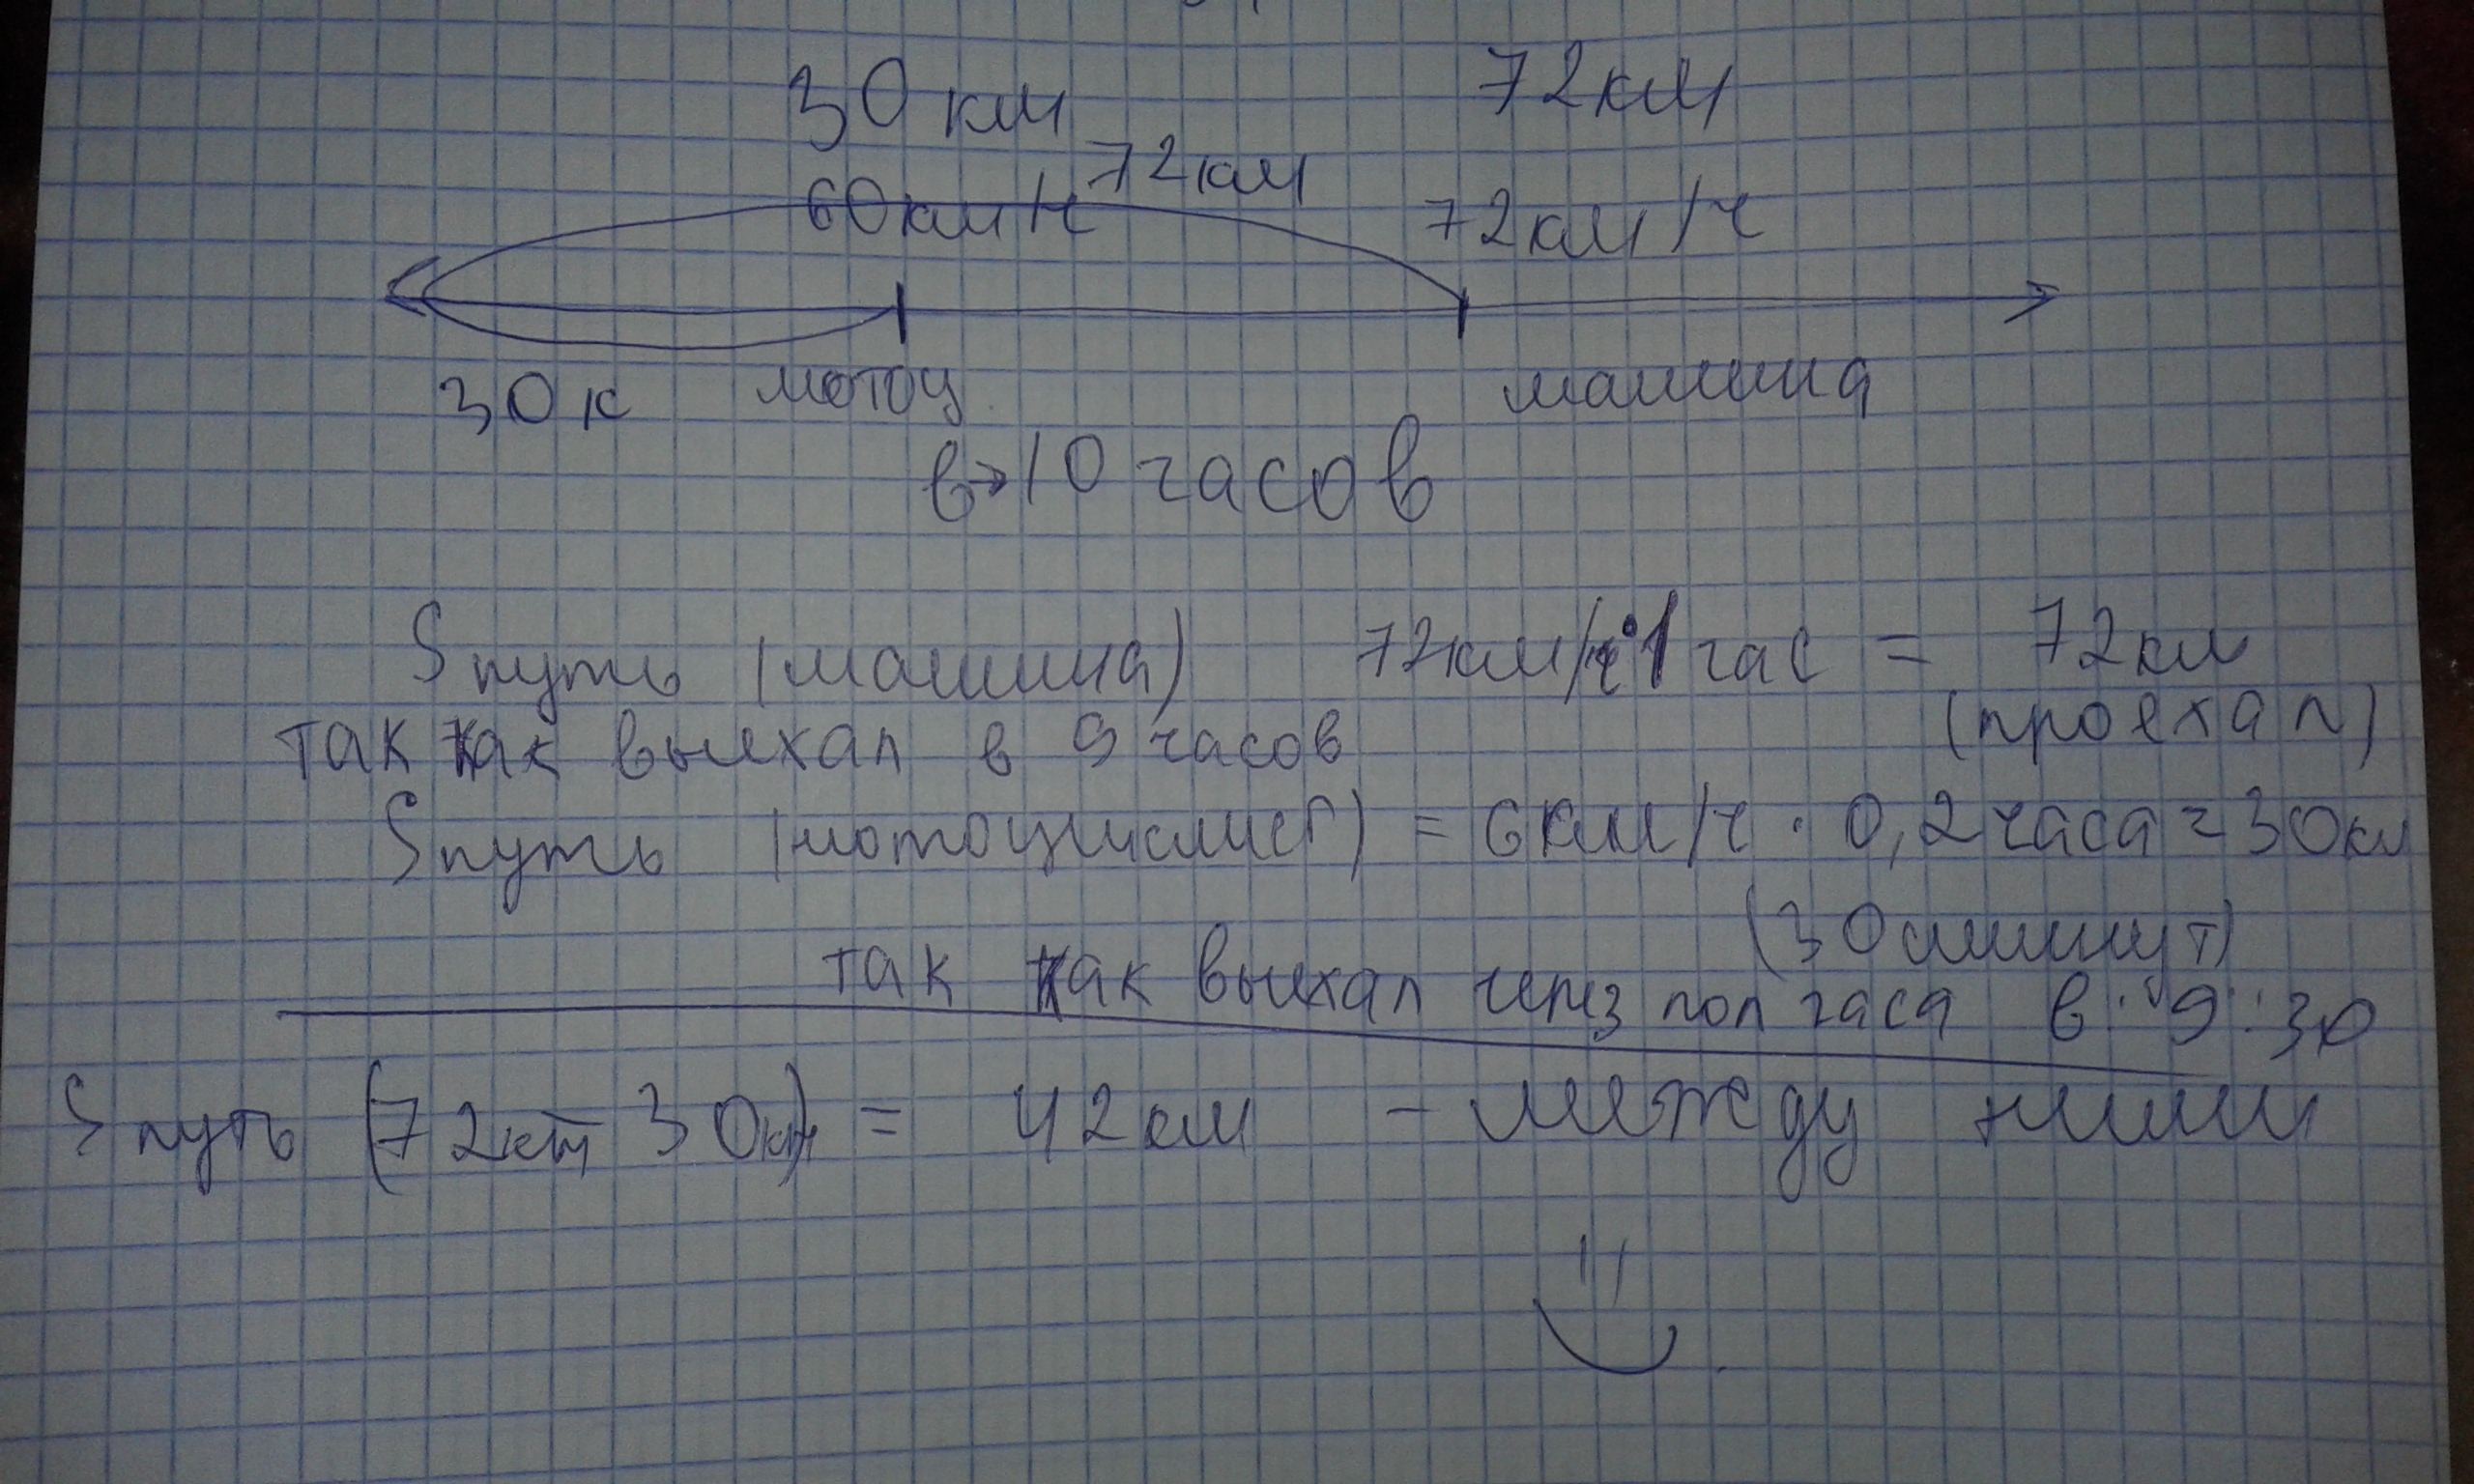 30 км 72 км
60 км/ч 72 км 72 км/ч
30 к мотоц машина
в → 10 часов
S путь (машина) 72 км/ч · 1 час = 72 км
так как выехал в 9 часов (проехал)
S путь (мотоциклист) = 6 км/ч · 0,2 часа = 30 км
(30 минут)
так как выехал через пол часа в 9:30
S путь (72км - 30км) = 42 км - между ними